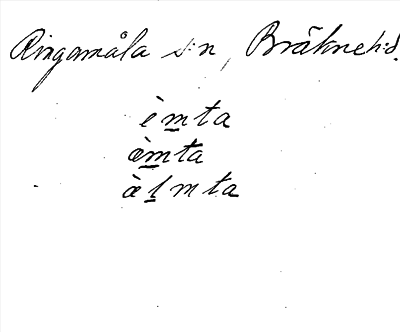 Ringamåla s:n, Bräkneh:d.
èm̲ta
æ̀m̲ta
æ̀l̲mta